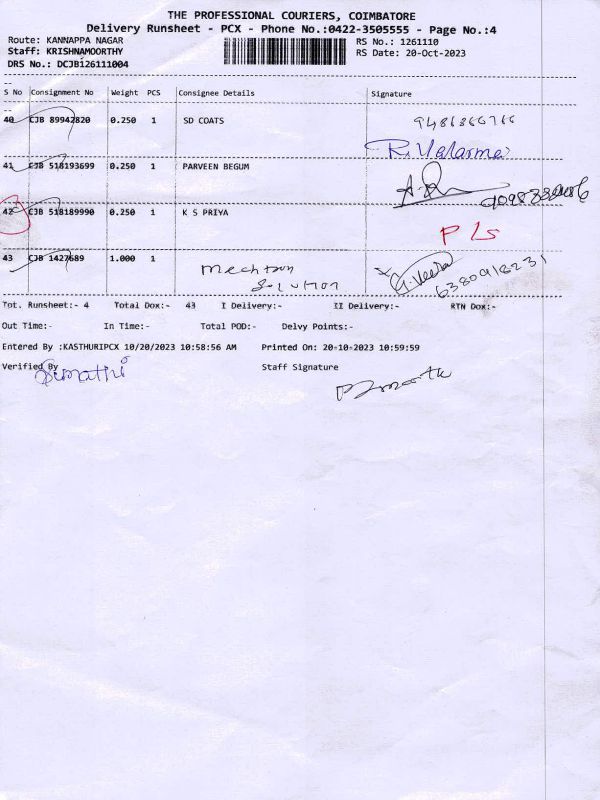 THE PROFESSIONAL COURIERS, COIMBATORE
Delivery Runsheet - PCX - Phone No.:0422-3505555 - Page No.:4
Route: KANNAPPA NAGAR
RS No.: 1261110
Staff: KRISHNAMOORTHY
RS Date: 20-Oct-2023
DRS No.: DCJB126111004
S No Consignment No Weight PCS Consignee Details Signature
40 CJB 89942820 0.250 1 SD COATS
R. Valarma
41 CJB 518193699 0.250 1 PARVEEN BEGUM
42 CJB 518189990 0.250 1 K S PRIYA
P Ls
43 CJB 1427689 1.000 1
6380918231
Tot. Runsheet:- 4 Total Dox:- 43 I Delivery:- II Delivery:- RTN Dox:-
Out Time:- In Time:- Total POD:- Delvy Points:-
Entered By :KASTHURIPCX 10/20/2023 10:58:56 AM Printed On: 20-10-2023 10:59:59
Verified By Staff Signature